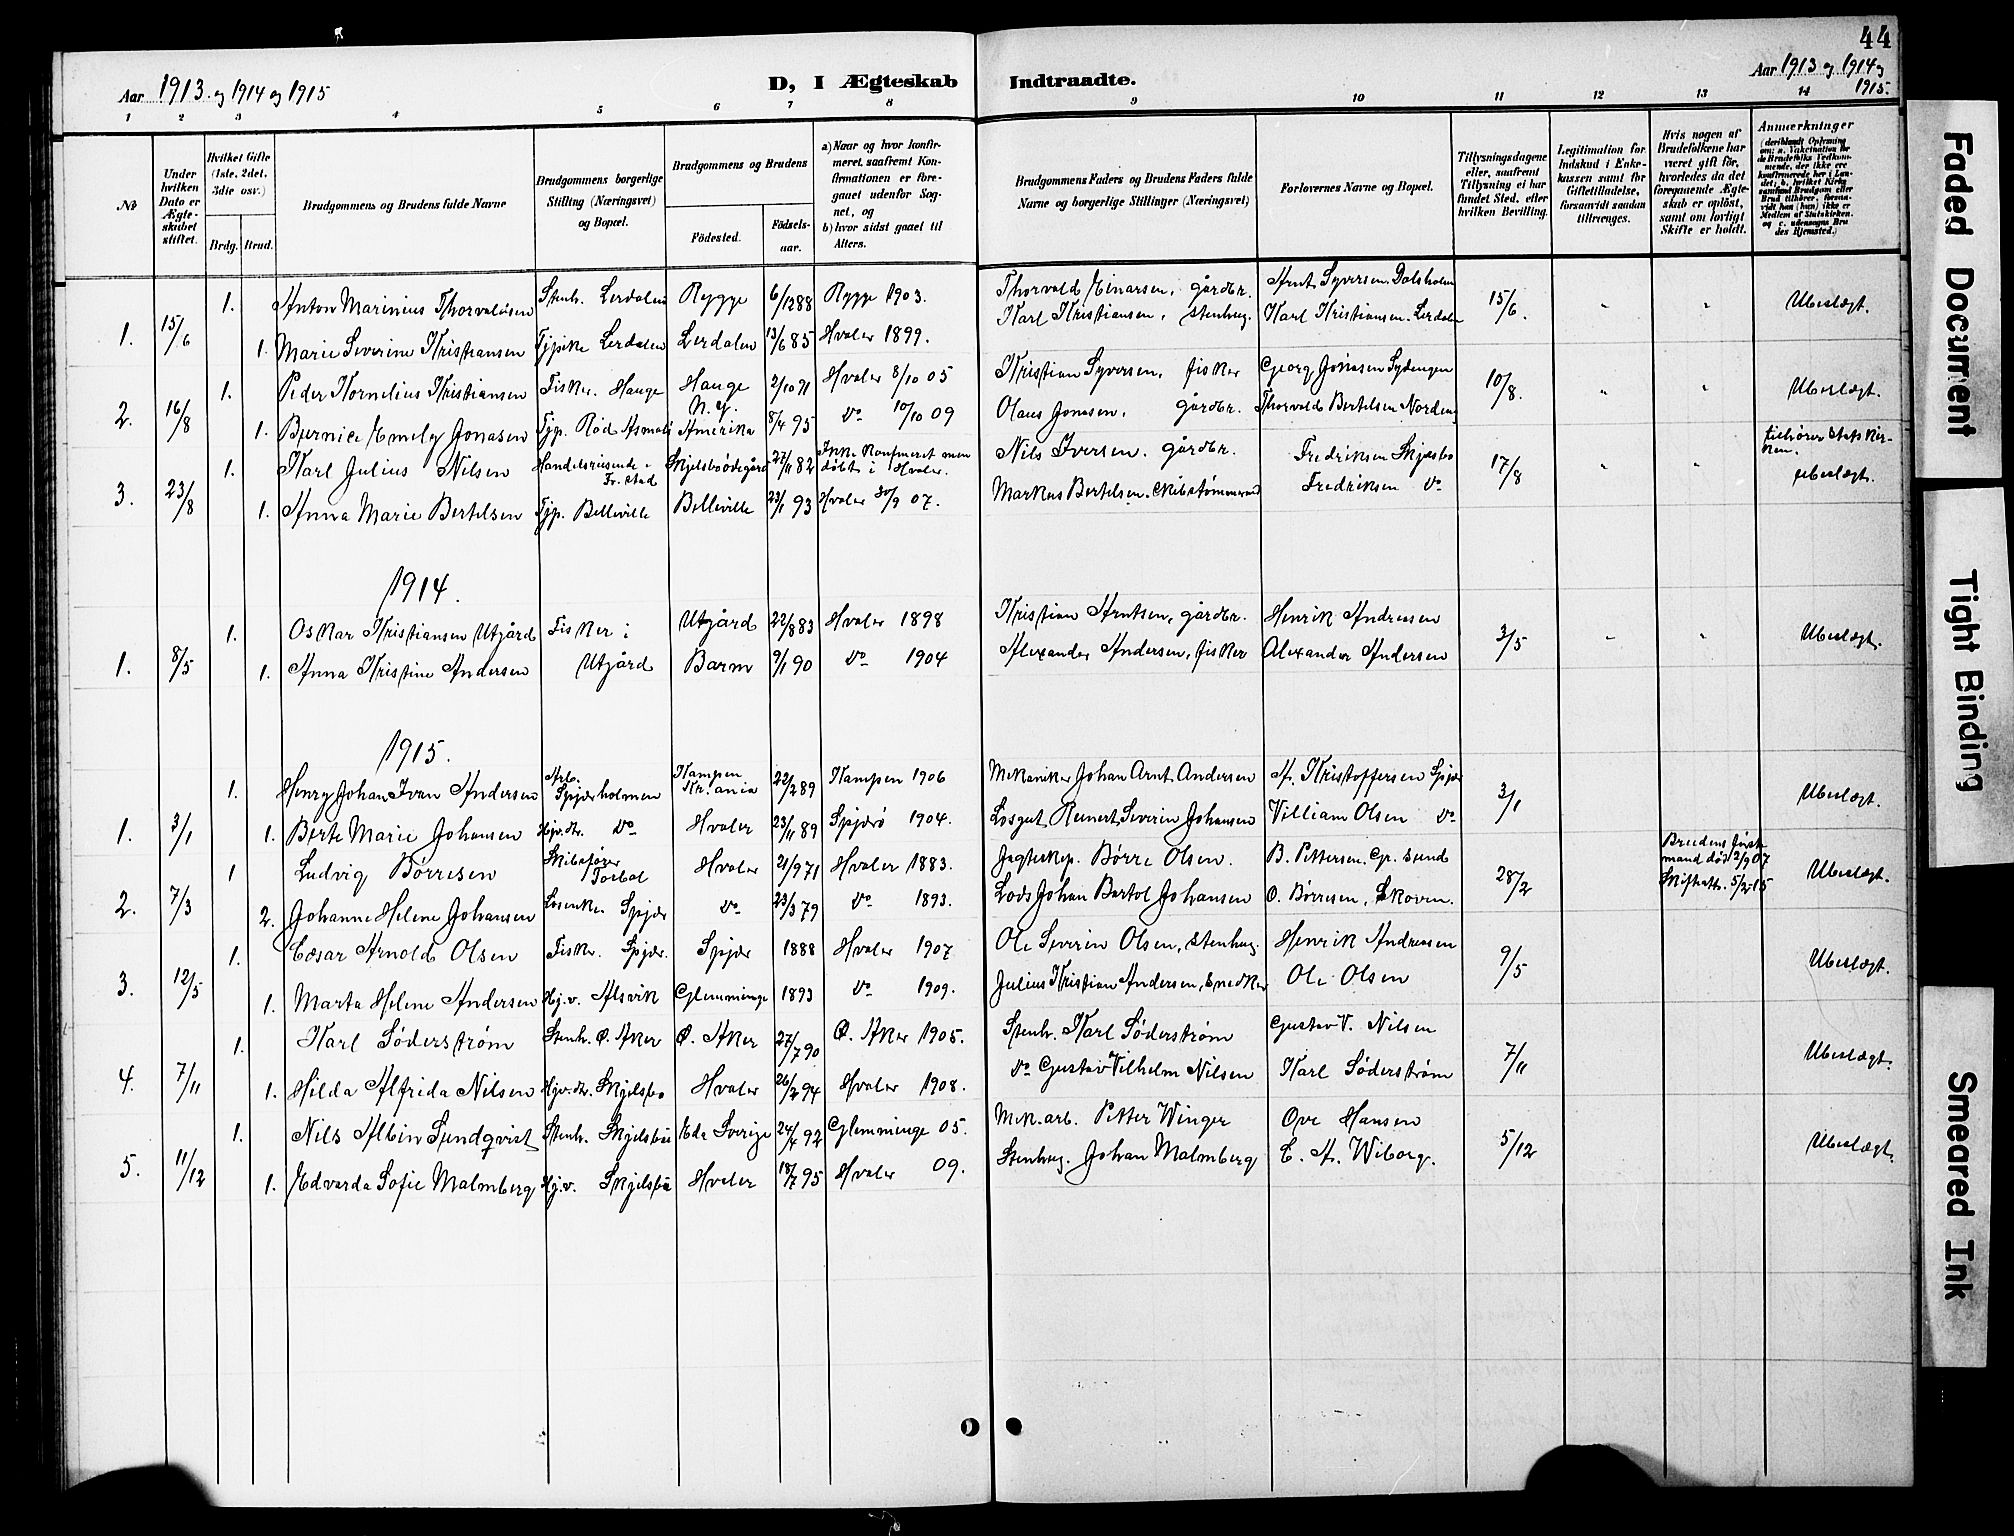 44
Aar 1913 og 1914 og 1915
D, I Ægteskab Indtraadte.
Aar 1913 og 1914 og 1915.
1 2 3 4 5 6 7 8 9 10 11 12 13 14
No
Under hvilken Dato er Ægteskabet stiftet.
Hvilket Gifte (1ste, 2det, 3die osv.)
Brdg. Brud.
Brudgommens og Brudens fulde Navne
Brudgommens borgerlige Stilling (Næringsvei) og Bopæl.
Brudgommens og Brudens
Födested.
Födselsaar.
a) Naar og hvor konfirmeret, saafremt Konfirmationen er foregaaet udenfor Sognet, og
b) hvor sidst gaaet til Alters.
Brudgommens Faders og Brudens Faders fulde Navne og borgerlige Stillinger (Næringsvei)
Forlovernes Navne og Bopæl.
Tillysningsdagene eller, saafremt Tillysning ei har fundet Sted, efter hvilken Bevilling.
Legitimation for Indskud i Enkekassen samt for Giftetilladelse, forsaavidt saadan tiltrænges.
Hvis nogen af Brudefolkene har været gift för, hvorledes da det foregaaende Ægteskab er oplöst, samt om lovligt Skifte er holdt.
Anmærkninger
1. 15/6 1. Anton Marinius Thorvaldsen Stenh. Lerdalen Rygge 6/12 88 Rygge 1903. Thorvald Einarsen, gårdbr. Arnt Syversen Dalsholm 15/6. Ubeslægt.
1. Marie Severine Kristiansen Tjpike Lerdalen Lerdalen 13/6 85 Hvaler 1899. Karl Kristiansen, stenhug. Karl Kristiansen Lerdalen
2. 16/8 1. Peder Kornelius Kristiansen Fisker. Hauge Hauge 2/10 91 Hvaler 8/10 05 Kristian Syversen, fisker Georg Jonasen Sydengen 10/8. Ubeslægt.
1. Bernice Emely Jonasen Tjp. Rød Asmal N. Y. Amerika 8/4 95 do 10/10 09 Olaus Jonasen, gårdbr. Thorvald Bertelsen Norden
3. 23/8 1. Karl Julius Nilsen Handelsreisende i Fr.stad Skjelsboödegård 27/11 82 Ikke Konfirmeret men döbt i Hvaler. Nils Iversen, gårdbr. Fredriksen Skjelsbo 17/8 tilhörer Statskirken. Ubeslægt.
1. Anna Marie Bertelsen Tjp. Belleville Belleville 23/1 93 Hvaler 30/9 07. Markus Bertelsen, Skibstømmermand Fredriksen do
1914.
1. 8/5 1. Oskar Kristiansen Utgård Fisker i Utgård 22/8 83 Hvaler 1898 Kristian Arntsen, gårdbr. Henrik Andreasen 3/5 Ubeslægt.
1. Anna Kristine Andersen Utgård Barm 9/1 90 do 1904 Alexander Andersen, fisker Alexander Andersen
1915.
1. 3/1 1. Henry Johan Ivan Andersen Arb. Spjærholmen Kampen Kr.ania 22/2 89 Kampen 1906 Mekaniker Johan Arnt Andersen A. Kristoffersen Spjær 3/1 Ubeslægt.
1. Berte Marie Johansen Hjv.dtr. do Hvaler 23/11 89 Spjærø 1904. Losgut Reinert Severin Johansen Villiam Olsen do
2. 7/3 1 Ludvig Börresen Skibsfører Torbal Hvaler 21/9 71 Hvaler 1883. Jagteskp. Börre Olsen. B. Pettersen, Gr. sund 28/2 Brudens förste mand död 2/9 07 Skifteatt. 5/2 15 Ubeslægt.
2. Johanne Helene Johansen Losenke. Spjær do 23/3 79 do 1893. Lods Johan Bertol Johansen O. Börresen, Skoven.
3. 12/5 1. Cæsar Arnold Olsen Fisker. Spjær. Spjær 1888 Hvaler 1907 Ole Severin Olsen, stenhug. Henrik Andreasen 9/5 Ubeslægt.
1. Marta Helene Andersen Hj.v. Alsvik Glemminge 1893 do 1909. Julius Kristian Andersen, snedker Ole Olsen
4. 7/11 1. Karl Söderström Stenh. Ø. Aker Ø. Aker 27/7 90 Ø. Aker 1905. Stenh. Karl Söderström Gustav V. Nilsen 7/11 Ubeslægt.
1. Hilda Alfrida Nilsen Hjv.dtr. Skjelsbo Hvaler 26/2 94 Hvaler 1908. do Gustav Vilhelm Nilsen Karl Söderström
5. 11/12 1. Nils Albin Sundqvist Stenh. Skjelsbu Eda Sverige 24/4 92 Glemminge 05. Mek.arb. Petter Winger Ove Hansen 5/12 Ubeslægt.
1. Edvarda Sofie Malmberg Hj.v. Skjelsbu Hvaler 18/7 95 Hvaler 09. Stenhug. Johan Malmberg C. A. Wiborg.
Faded Document
Tight Binding
Smeared Ink